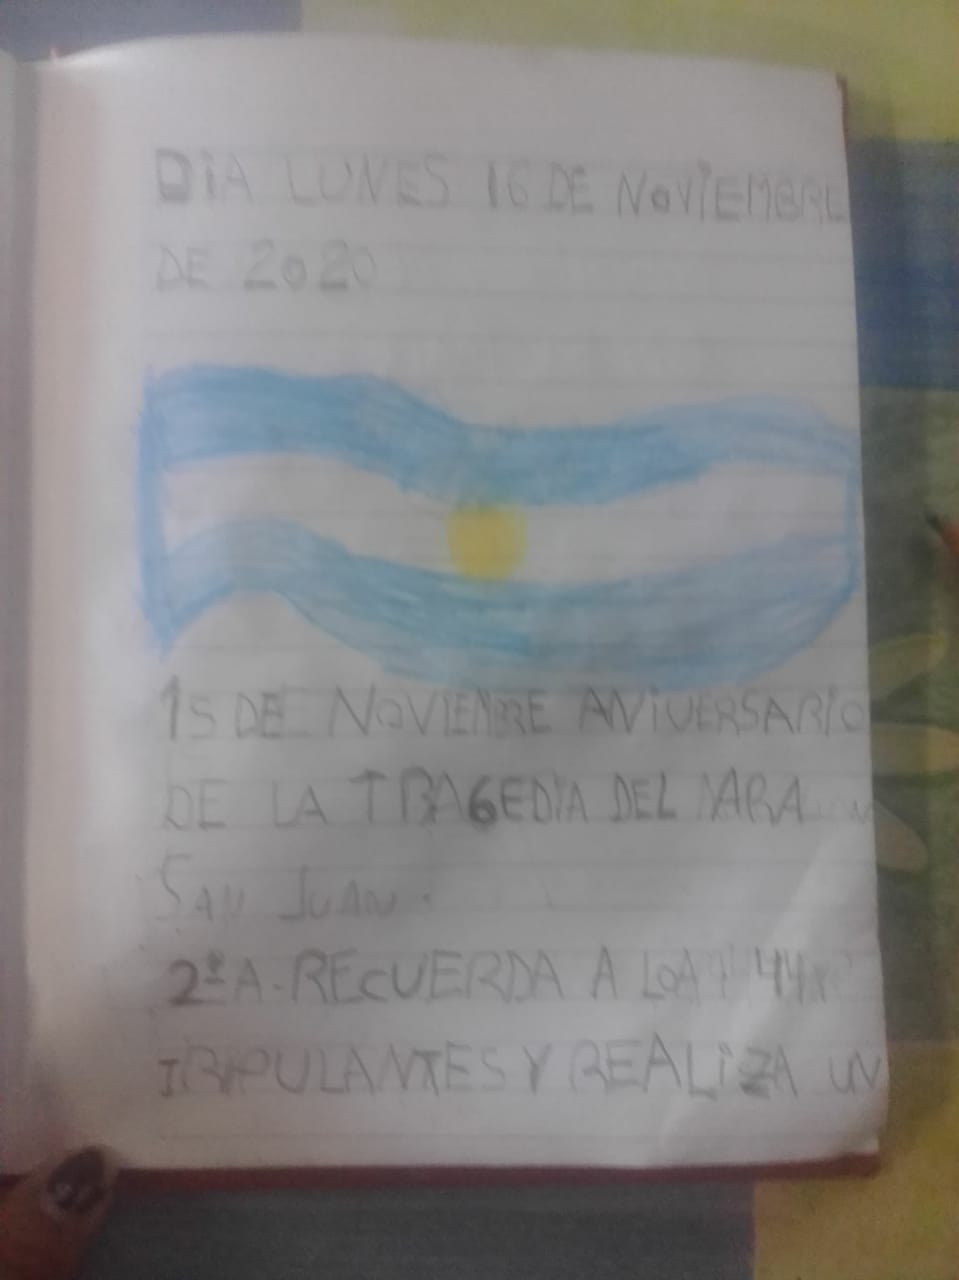 DIA LUNES 16 DE NOVIEMBRE
DE 2020
15 DE NOVIEMBRE ANIVERSARIO
DE LA TRAGEDIA DEL ARA
SAN JUAN.
2º A. RECUERDA A 44
TRIPULANTES Y REALIZA UN